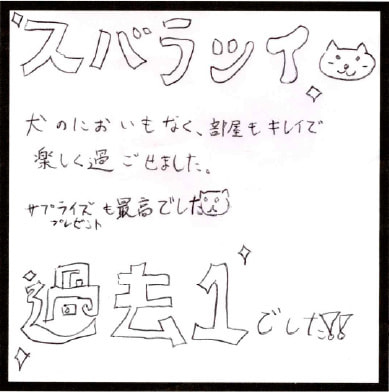 スバラツイ
犬のにおいもなく、部屋もキレイで
楽しく過ごせました。
サプライズプレゼントも最高でした
過去1でした!!